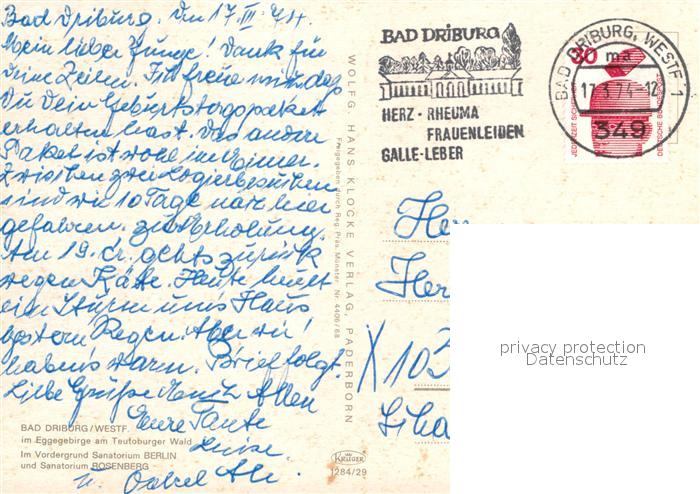 Bad Driburg. Den 17. III. 74.
Mein lieber Junge! Dank für
Deine Zeilen. Ich freue mich, daß
Du Dein Geburtstagspaket
erhalten hast. Das andere
Paket ist wohl im Eimer.
Zwischen zwei Logierbesuchen
sind wir 10 Tage nach hier
gefahren. zur Erholung.
Am 19. cr. gehts zurück
wegen Käte. Heute heult
ein Sturm um's Haus
gestern Regen. Aber wir
haben's warm. Brief folgt.
Liebe Grüße Euch Allen
Eure Tante
Luise.
u. Onkel
BAD DRIBURG/WESTF.
im Eggegebirge am Teutoburger Wald
Im Vordergrund Sanatorium BERLIN
und Sanatorium ROSENBERG
WOLFG. HANS KLOCKE VERLAG, PADERBORN
Freigegeben durch Reg. Präs. Münster Nr. 4406/68
KRÜGER
1284/29
BAD DRIBURG
HERZ - RHEUMA
FRAUENLEIDEN
GALLE-LEBER
BAD DRIBURG, WESTF 1
17.3.74-12
349
30
JEDERZEIT SICHERHEIT
DEUTSCHE BUNDESPOST
Her
Her
privacy protection
Datenschutz